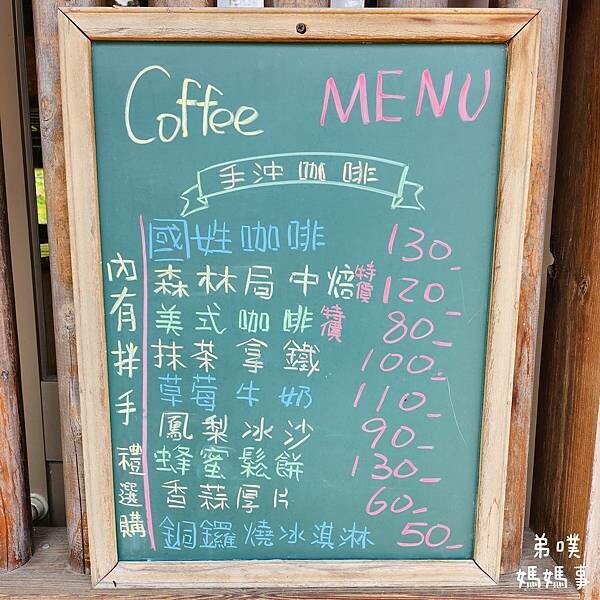 Coffee MENU
手沖咖啡
國姓咖啡 130-
森林局中焙 特價 120-
美式咖啡 特價 80-
抹茶拿鐵 100-
草莓牛奶 110-
鳳梨冰沙 90-
蜂蜜鬆餅 130-
香蒜厚片 60-
銅鑼燒冰淇淋 50-
內有拌手禮選購
弟噗
媽媽事